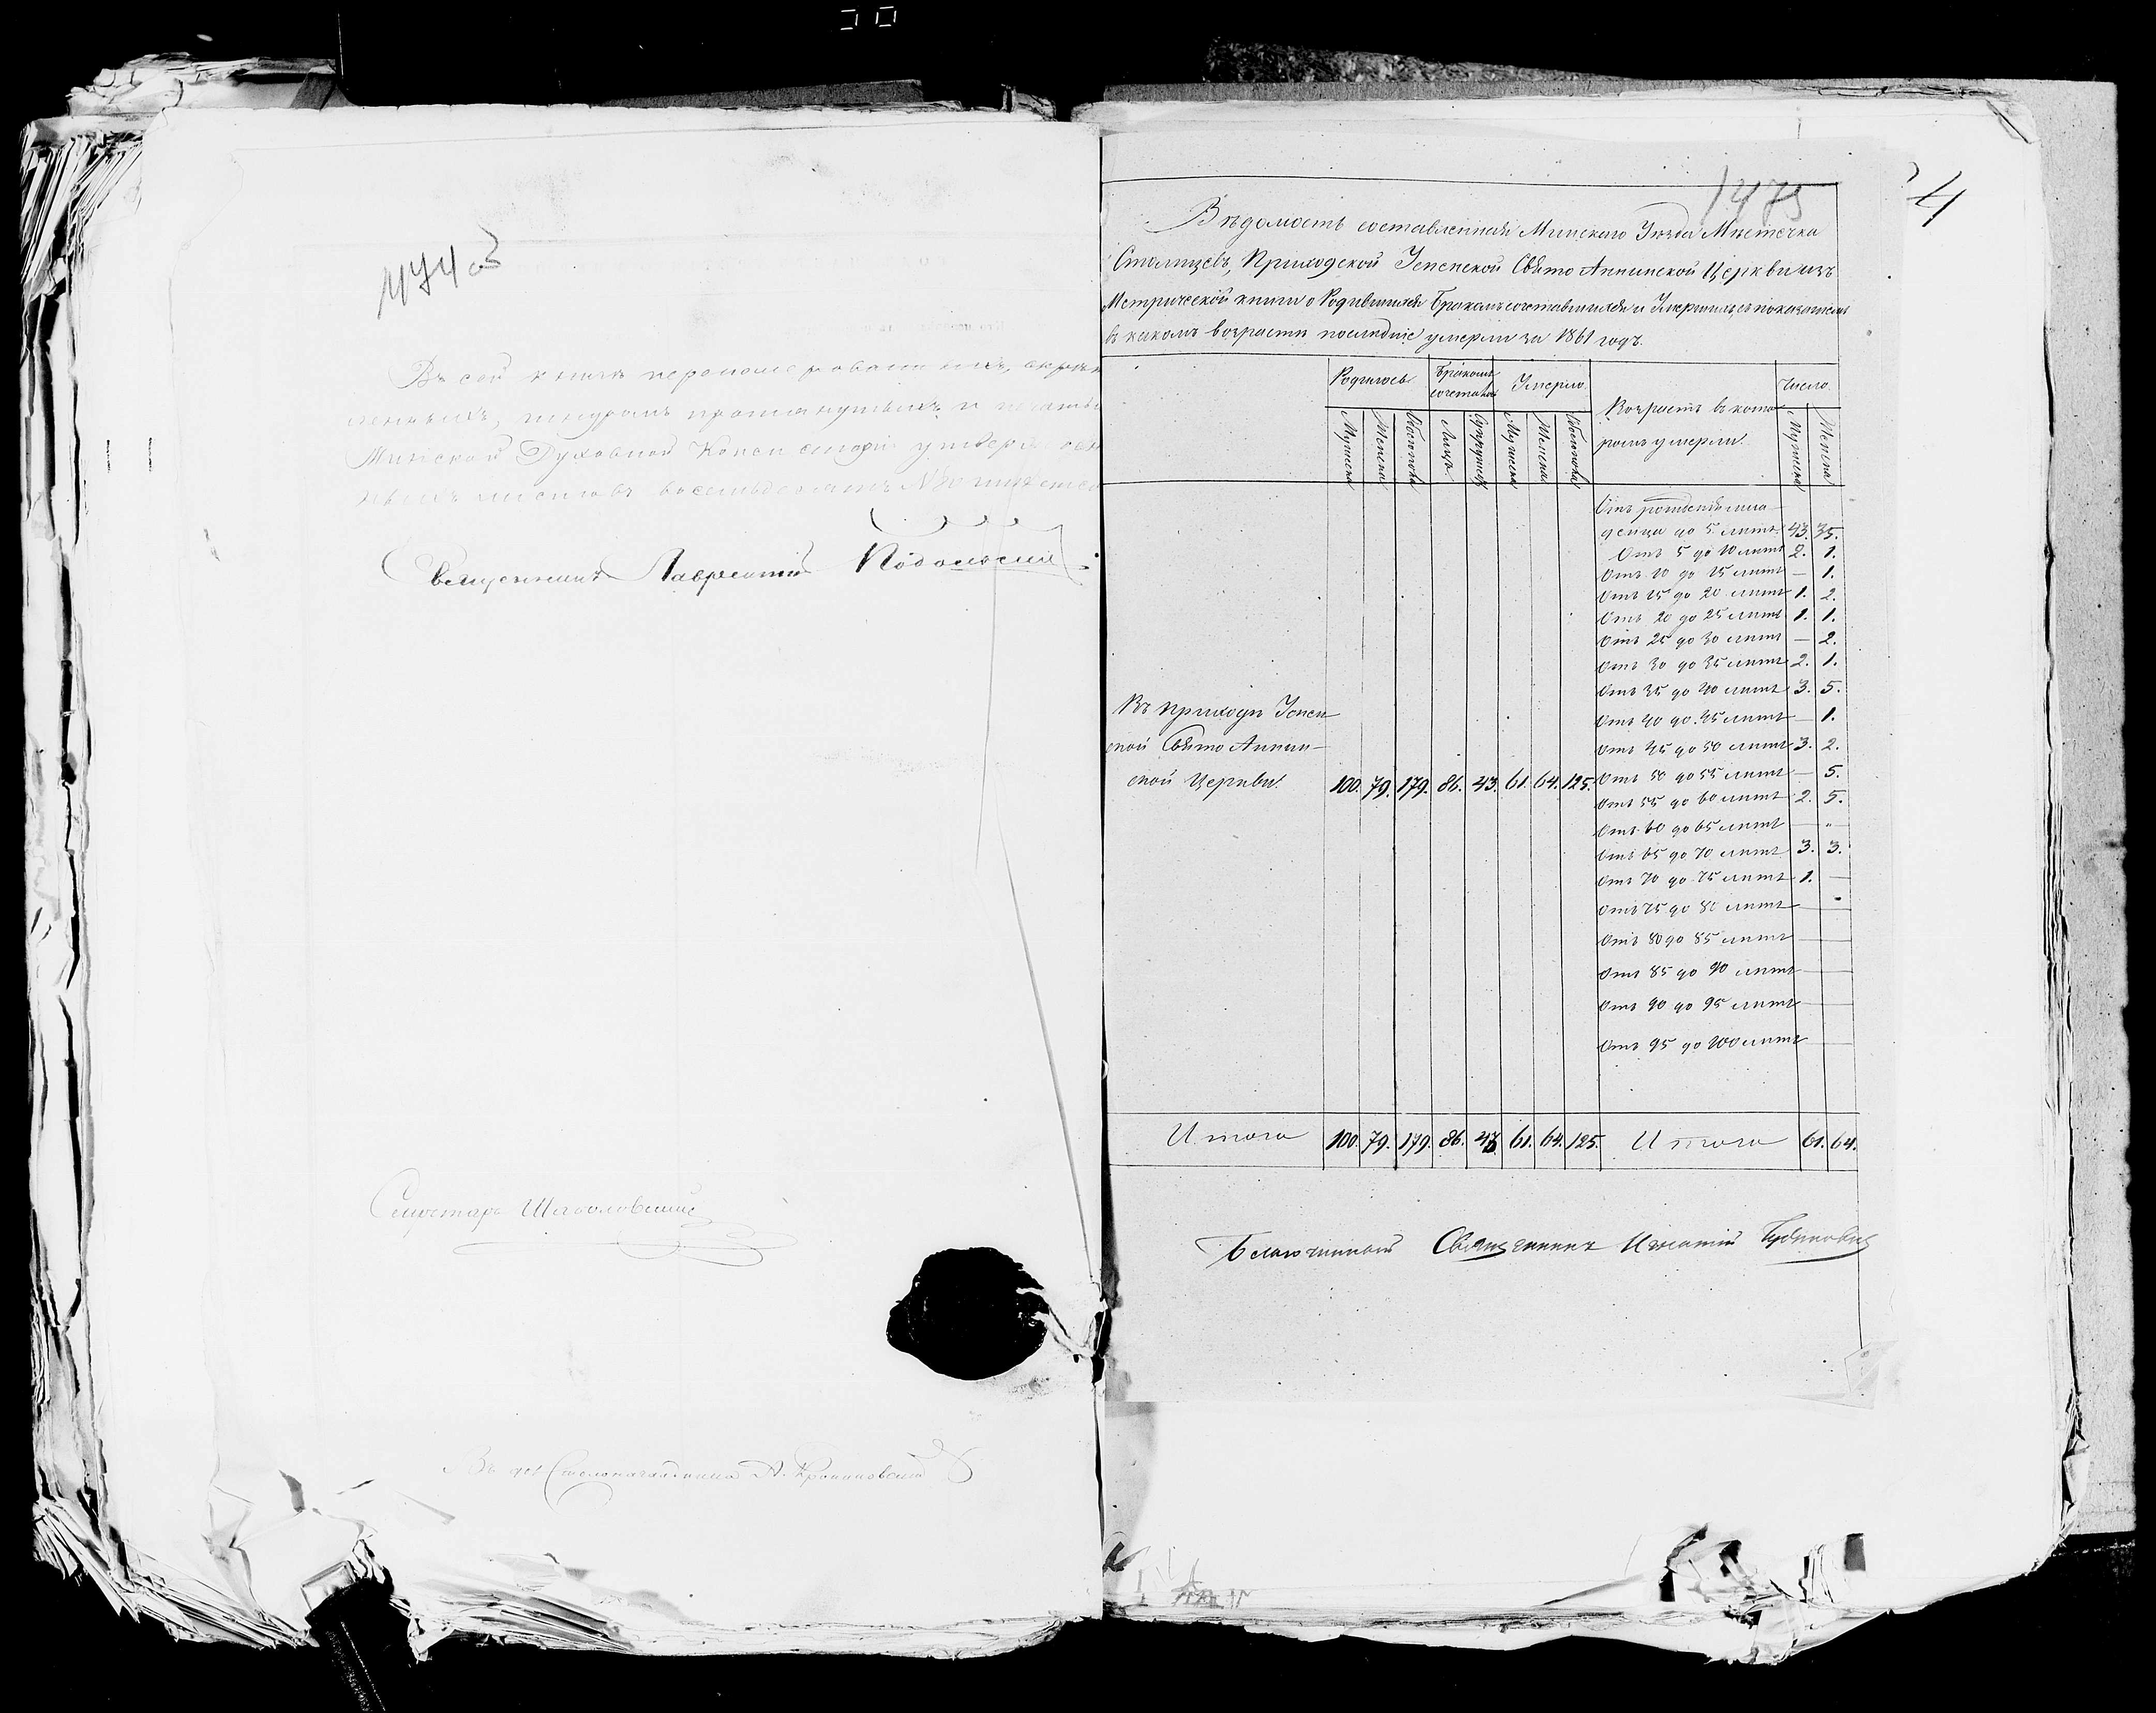 1474 об
Въ сей книгѣ перономерованныхъ, скрѣп
ленныхъ, шнуромъ протянутыхъ и печатью
Минской Духовной Консисторіи утвержден
ныхъ листовъ восемьдесятъ №80
Священникъ Лаврентій Подольскій
Секретарь
Столоначальника А.
1475
4
Вѣдомость составленная Минскаго Уѣзда Мѣстечка
Столпцевъ, Приходской Успенской Свято Аннинской Церкви изъ
Метрической книги о Родившихся Бракомъ сочетавшихся и Умершихъ, съ показаніемъ
въ какомъ возрастѣ послѣдніе умерли за 1861 годъ.
Родилось Бракомъ сочетались Умерло Возрастъ въ кото- Число
ромъ умерли.
Мужеска Женска Обоего пола Лицъ Супружествъ Мужеска Женска Обоего пола Мужеска Женска
Отъ рожденія мла-
денца до 5. лѣтъ 43. 35.
Отъ 5 до 10 лѣтъ 2. 1.
Отъ 10 до 15 лѣтъ — 1.
Отъ 15 до 20 лѣтъ 1. 2.
Отъ 20 до 25 лѣтъ 1. 1.
Отъ 25 до 30 лѣтъ — 2.
Отъ 30 до 35 лѣтъ 2. 1.
Отъ 35 до 40 лѣтъ 3. 5.
Отъ 40 до 45 лѣтъ — 1.
Отъ 45 до 50 лѣтъ 3. 2.
Отъ 50 до 55 лѣтъ — 5.
Отъ 55 до 60 лѣтъ 2. 5.
Отъ 60 до 65 лѣтъ — „
Отъ 65 до 70 лѣтъ 3. 3.
Отъ 70 до 75 лѣтъ 1. —
Отъ 75 до 80 лѣтъ — -
Отъ 80 до 85 лѣтъ — —
Отъ 85 до 90 лѣтъ — —
Отъ 90 до 95 лѣтъ — —
Отъ 95 до 100 лѣтъ — —
Въ приходѣ Успен
ской Свято Аннин-
ской Церкви. 100. 79. 179. 86. 43. 61. 64. 125.
Итого 100. 79. 179. 86. 43 61. 64. 125. Итого 61. 64.
Благочинный Священникъ Игнатій